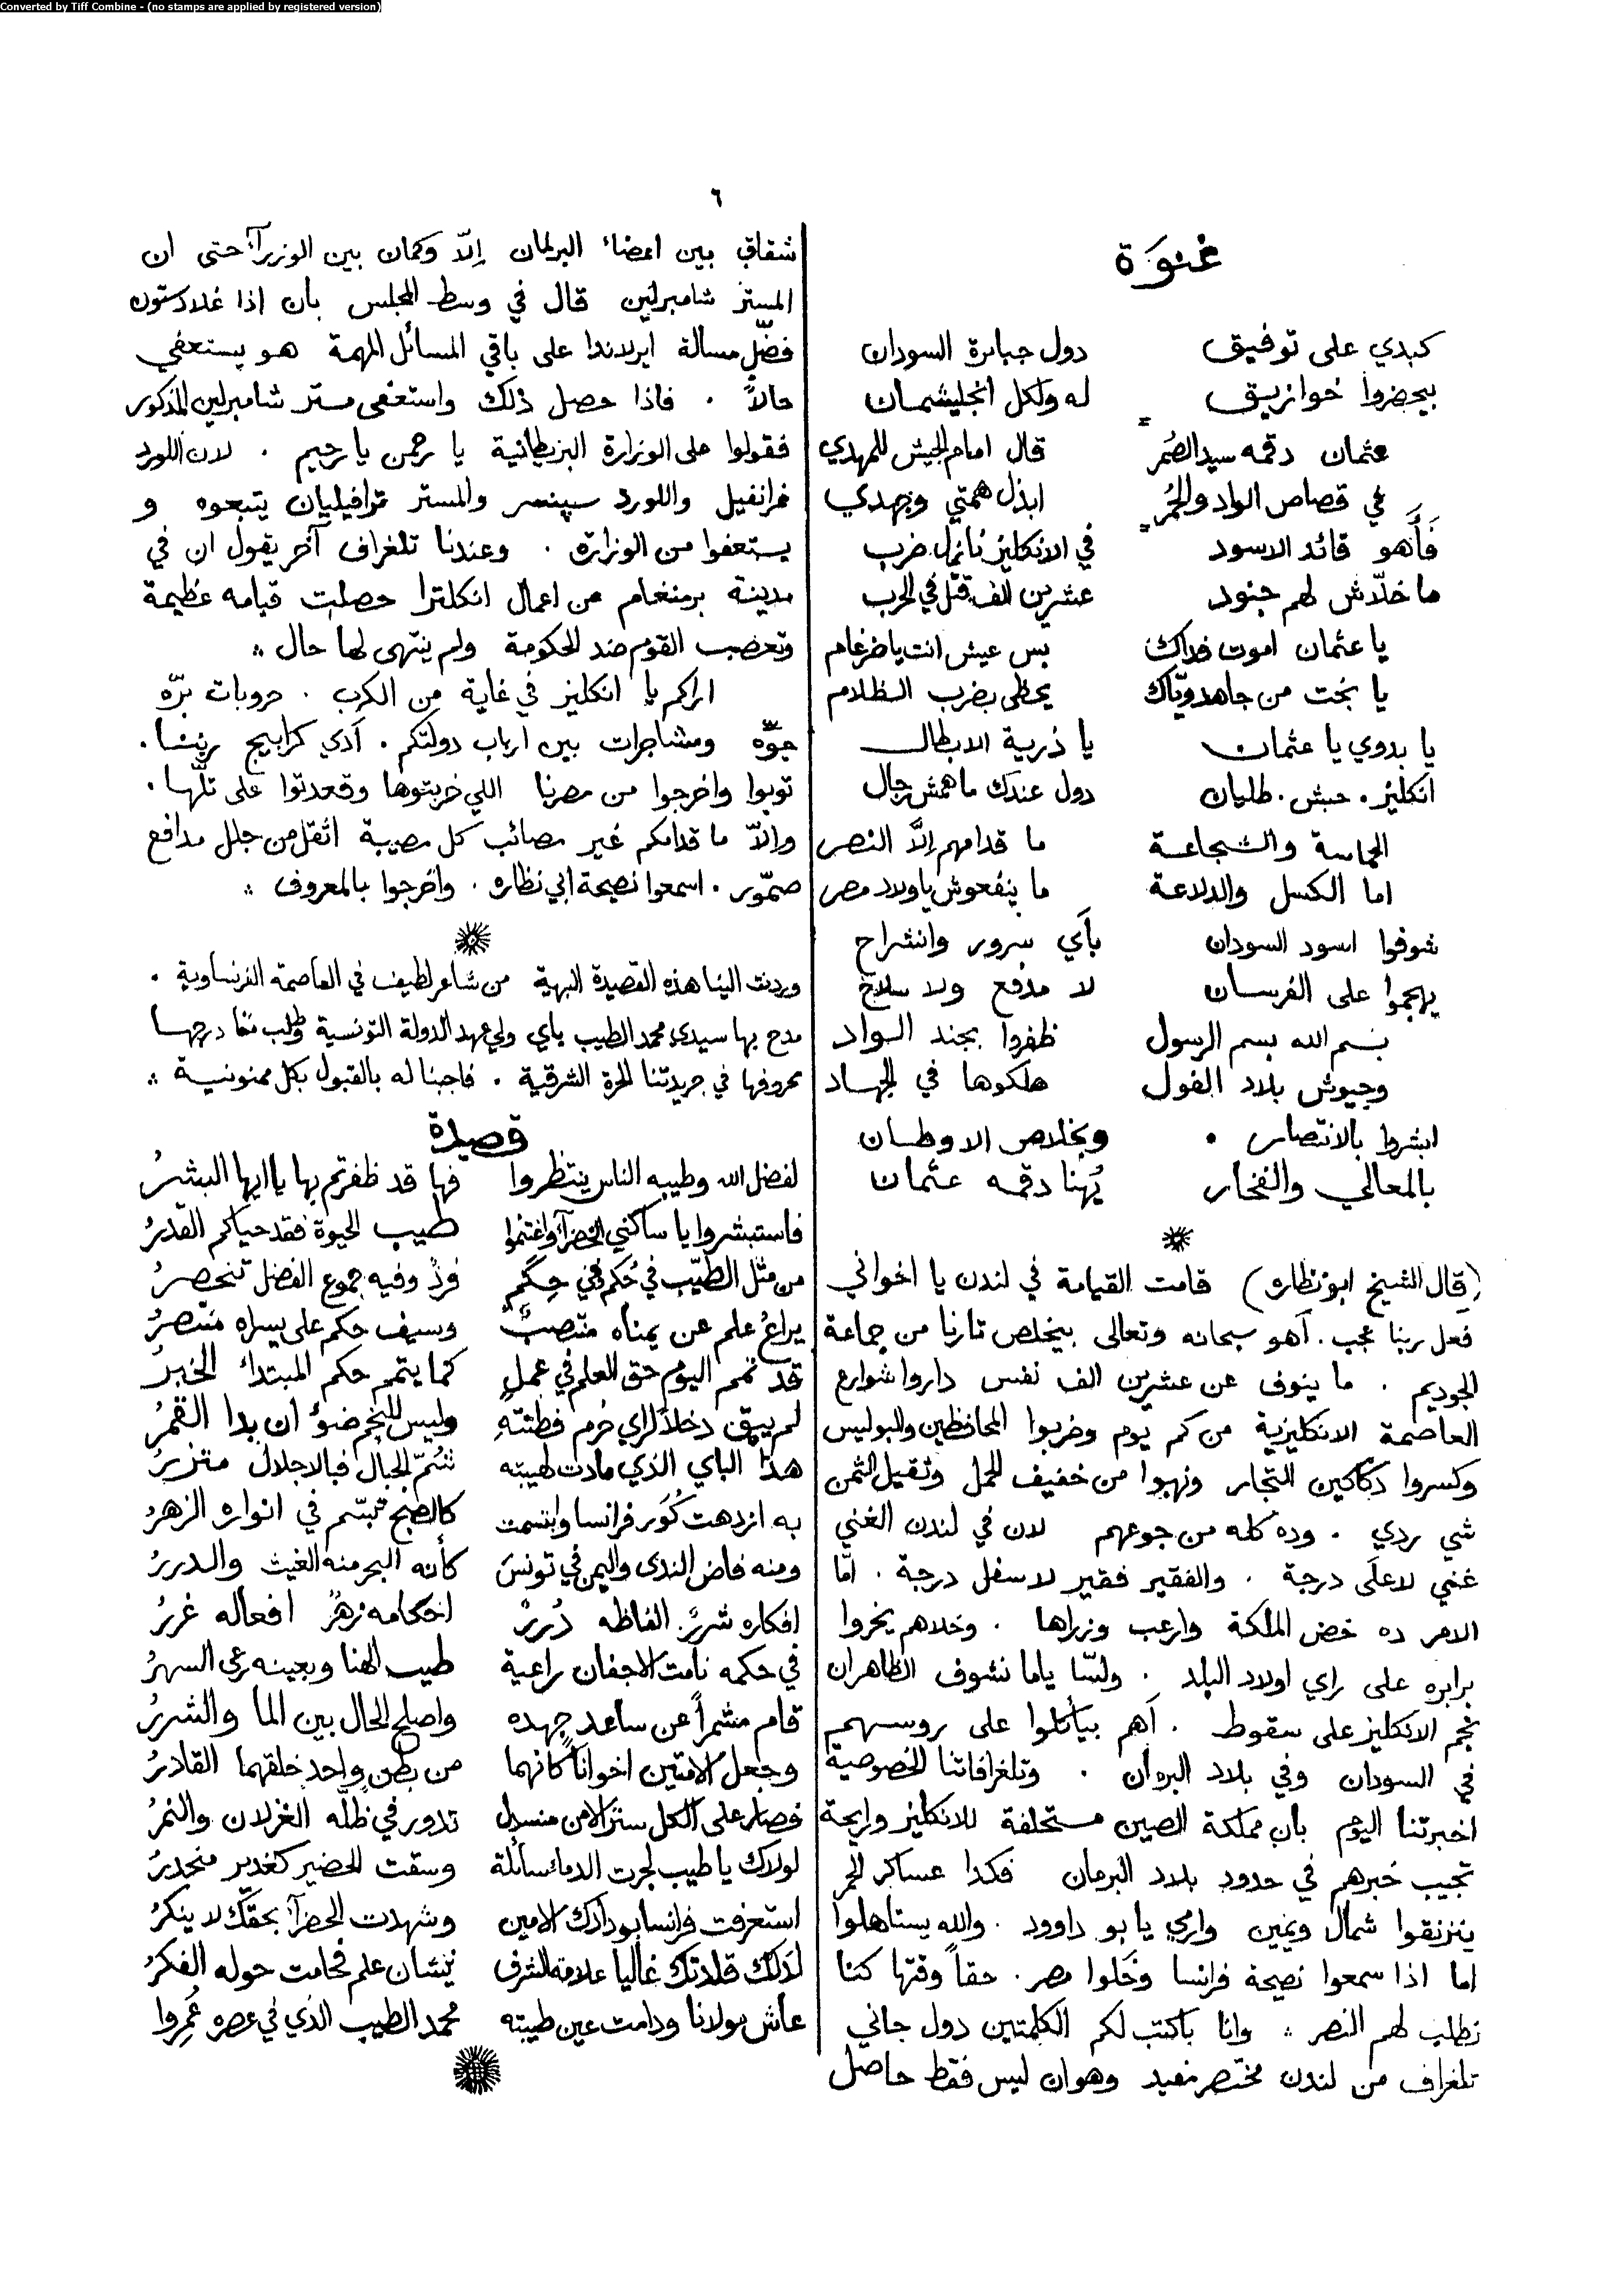 Converted by Tiff Combine - (no stamps are applied by registered version)
٦
غنوَة
كبدي على توفيق دول جبابرة السودان
بيحضروا خوازيق له ولكل انجليشمان
عثمان دقمه سيد الصُمر قال امام الجيش للمهدي
في قصاص الواد والحُمر ابذل همتي وجهدي
فَأَهو قائد الاسود في الانكليز نازل ضرب
ما خلّاش لهم جنود عشرين الف قتل في الحرب
يا عثمان اموت فداك بس عيش انت يا ضرغام
يا بخت من جاهد ويّاك يحظى بضرب الظلام
يا بدوي يا عثمان يا ذرية الابطال
انكليز . حبش . طليان دول عندك ما همش رجال
الحماسة والشجاعة ما قدامهم إلَّا النصر
اما الكسل والدلاعة ما ينفعوش يا ولاد مصر
شوفوا اسود السودان بأَي سرور وانشراح
يهجموا على الفرسان لا مدفع ولا سلاح
بسم الله بسم الرسول ظفروا بجند الواد
وجيوش بلاد الفول هلكوها في الجهاد
ابشروا بالانتصار . وبخلاص الاوطان
بالمعالي والفخار يُهنا دقمه عثمان
(قال الشيخ ابو نظاره) قامت القيامة في لندن يا اخواني
فعل ربنا عجب . آهو سبحانه وتعالى بيخلص تارنا من جماعة
الجوديم . ما ينوف عن عشرين الف نفس داروا شوارع
العاصمة الانكليزية من كم يوم وضربوا المحافظين والبوليس
وكسروا دكاكين التجار ونهبوا من خفيف الحمل وثقيل الثمن
شي ردي . وده كله من جوعهم لان في لندن الغني
غني لاعلَى درجة . والفقير فقير لاسفل درجة . امّا
الامر ده خض الملكة وارعب وزراها . وخلاهم يخروا
برابره على راي اولاد البلد . ولسّا ياما نشوف الظاهران
نجم الانكليز على سقوط . آهم بيأتلوا على روسهم
في السودان وفي بلاد البرمان . وتلغرافاتنا الخصوصية
اخبرتنا اليوم بان مملكة الصين مستحلفة للانكليز ورايحة
تجيب خبرهم في حدود بلاد البرمان فكدا عساكر الحمر
ينزنقوا شمال ويمين وارمي يا بو داوود . والله يستاهلوا
اما اذا سمعوا نصيحة فرانسا وخَلوا مصر . حقاً وقتها كنا
نطلب لهم النصر وانا باكتب لكم الكلمتين دول جاني
تلغراف من لندن مختصر مفيد وهو ان ليس فقط حاصل
شقاق بين اعضاء البرلمان إلّا وكمان بين الوزرآء حتى ان
المستر شامبرلين قال في وسط المجلس بأن اذا غلادستون
فضّل مسالة ايرلاندا على باقي المسائل المهمة هو يستعفي
حالاً . فاذا حصل ذلك واستعفى مستر شامبرلين المذكور
فقولوا على الوزارة البريطانية يا رحمن يا رحيم . لان اللورد
غرانفيل واللورد سپنسر والمستر ترافيليان يتبعوه و
يستعفوا من الوزارة . وعندنا تلغراف آخر يقول ان في
مدينة برمنغام من اعمال انكلترا حصلت قيامه عظيمة
وتعصب القوم ضد الحكومة ولم ينتهى لها حال
اراكم يا انكليز في غاية من الكرب . حروبات برّه
جوّه ومشاجرات بين ارباب دولتكم . آدي كرابيج ربنا .
توبوا واخرجوا من مصرنا اللي خربتوها وقعدتوا على تلّها .
والّا ما قدامكم غير مصائب كل مصيبة اثقل من جلل مدافع
صمّور . اسمعوا نصيحة ابي نظاره . واخرجوا بالمعروف
وردت الينا هذه القصيدة البهية من شاعر لطيف في العاصمة الفرنساوية .
مدح بها سيدي محمد الطيب باي ولي عهد الدولة التونسية وطلب منا درجها
بحروفها في جريدتنا الحرة الشرقية . فاجبنا له بالقبول بكل ممنونية
قصيدة
لفضل الله وطيبه الناس ينتظروا فها قد ظفرتم بها يا ايها البشرُ
فاستبشروا يا ساكني الخضرآ واغتنموا طيب الحيوة فقد حياكم القدرُ
من مثل الطيّب في حُكم وفي حِكَمٍ فردٌ وفيه جموع الفضل تنحصرُ
يراعُ علم عن يمناه منتصبٌ وسيف حكم على يسراه منتصرُ
قد تمم اليوم حق العلم في عملٍ كما يتمم حكم المبتداء الخبرُ
لم يبق دخلاً لراي خرم فطنتهِ وليس للنجم ضوءٌ ان بدا القمرُ
هذا الباي الذي مادت لهيبته شُمّ الجبال فبالاجلال متزرُ
به ازدهت كُوَر فرانسا وابتسمت كالصبح تبسّم في انواره الزهرُ
ومنه فاض الندى واليمن في تونسَ كأنه البحر منه الغيث والدررُ
افكاره شررٌ الفاظه دُررٌ احكامه زهرٌ افعاله غررُ
في حكمه نامت الاجفان راعية طيب الهنا وبعينه رعى السهرُ
قام مشمراً عن ساعد جهده واصلح الحال بين الما والشررُ
وجعل الامتين اخواناً كانهما من بطن واحد خلقهما القادرُ
فصار على الكل ستر الامن منسدل تدور في ظلّه الغزلان والنمرُ
لولاك يا طيب لجرت الدماء سائلة وسقت الحضير كغدير منحدرُ
استعرفت فرانسا بودادك الامين وشهدت الخضرآ بحقّك لا ينكرُ
لذلك قلدتك غالياً علامة الشرف نيشان علم فحامت حوله الفكرُ
عاش مولانا ودامت عين طيبته محمد الطيب الذي في عصره عُمِروا